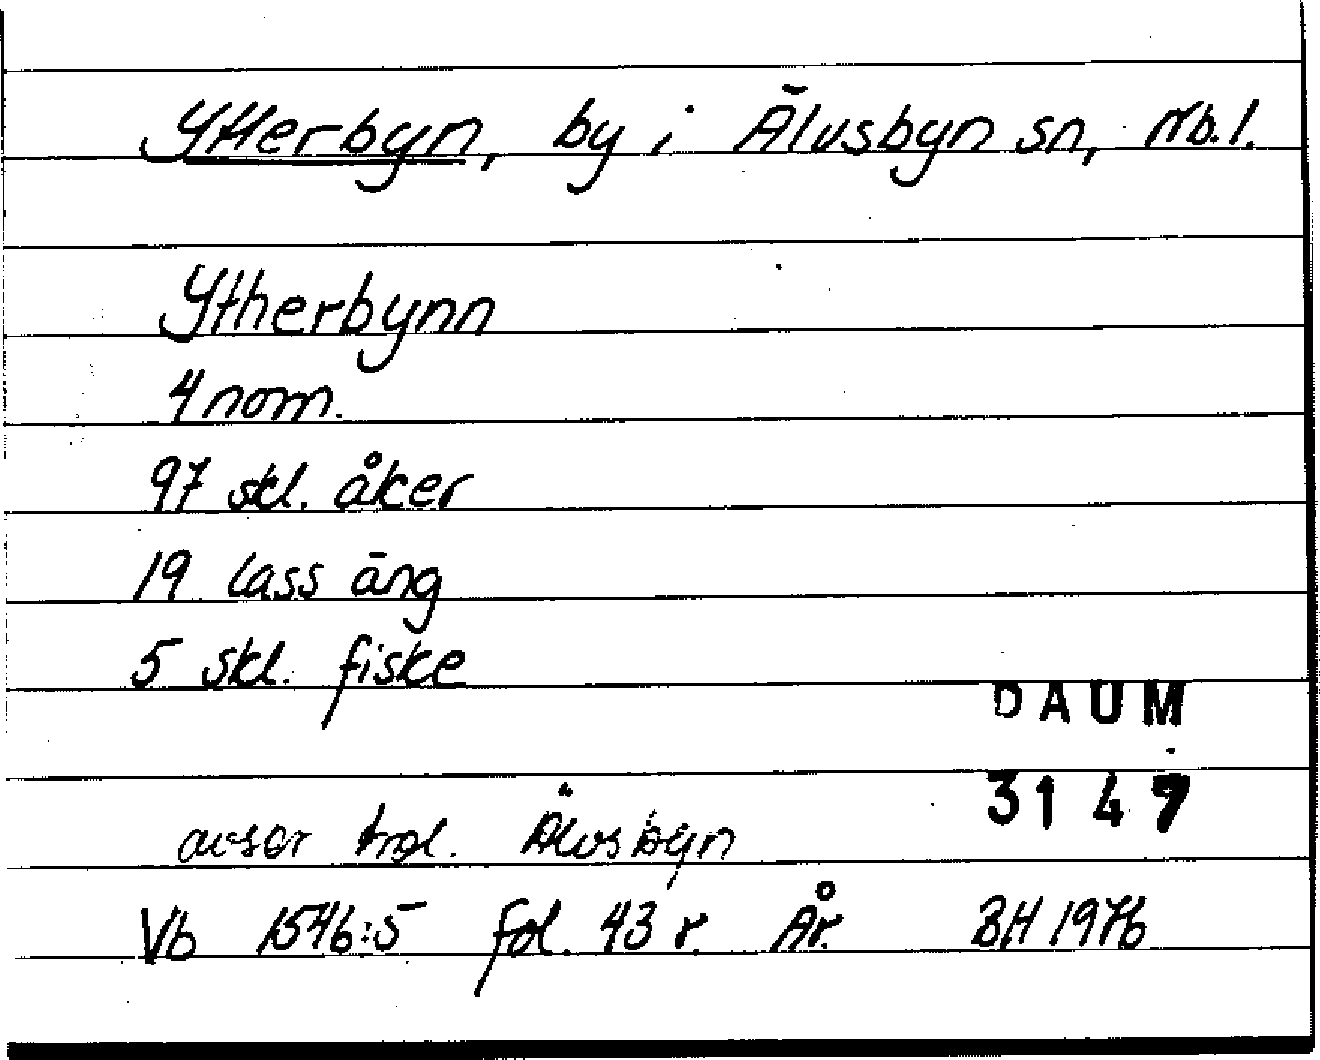 Ytterbyn, by i Älvsbyn sn, Nb.l.
Ytherbynn
4 nom.
97 skl. åker
19 lass äng
5 skl. fiske
DAUM
3147
avser trol. Älvsbyn
Vb 1546:5 fol. 43 r. År. BH 1976